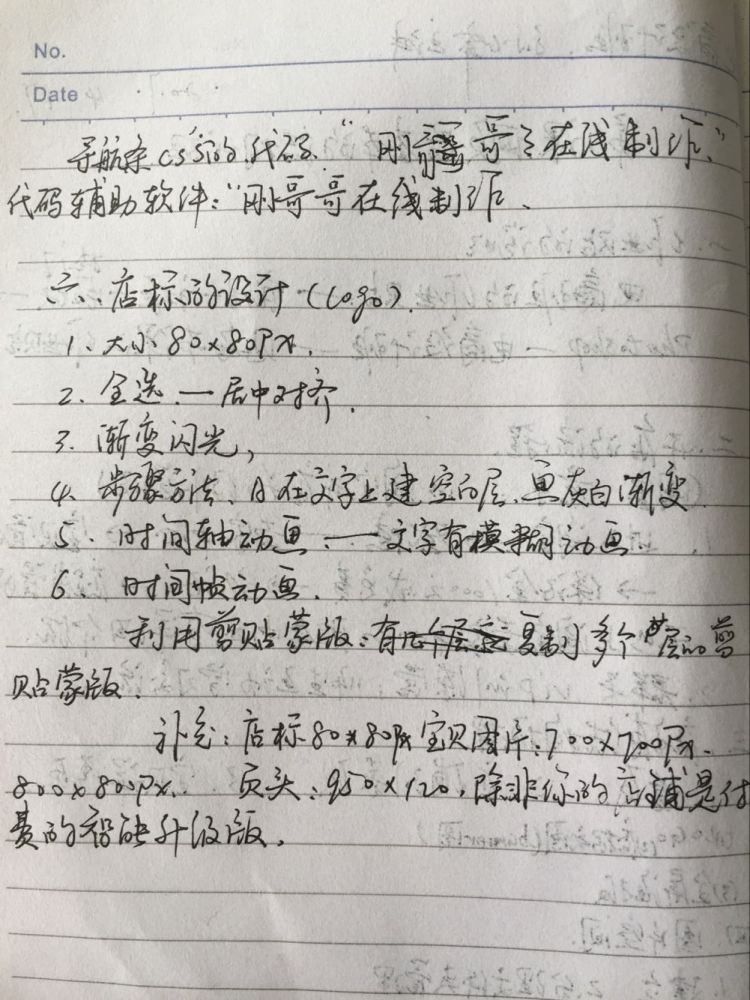 No.
Date
导航条CSS的代码."刚哥哥在线制作."
代码辅助软件:"刚哥哥在线制作.
六、店标的设计(logo).
1、大小80×80Px.
2、全选.—居中对齐.
3、渐变闪光,
4、步骤方法、A在文字上建空的层、画灰白渐变.
5、时间轴动画:—文字有模糊动画.
6、时间帧动画.
利用剪贴蒙版:复制多个层的剪
贴蒙版.
补充:店标80×80Px宝贝图片:700×700Px.
800×800Px. 页头:950×120,除非你的店铺是付
费的智能升级版.